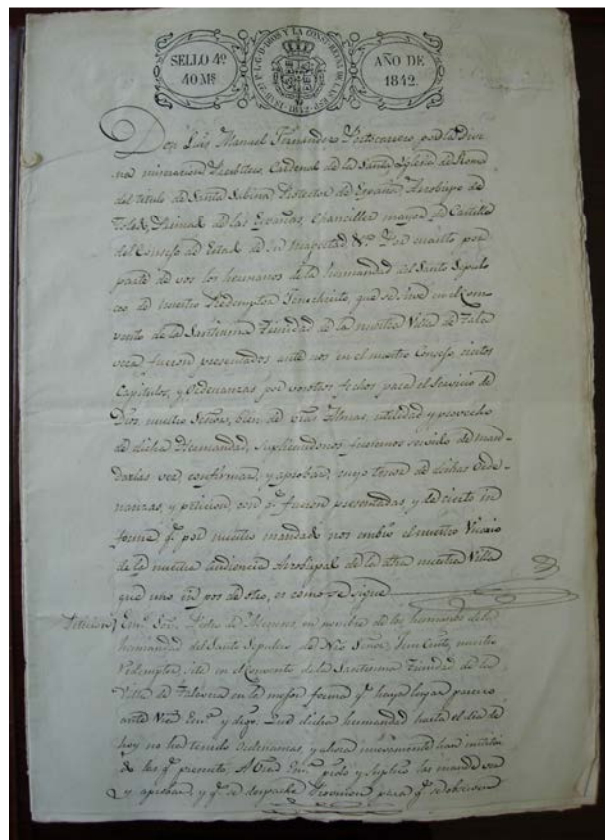 SELLO 4º
40 Ms
AÑO DE
1842.
Don Luis Manuel Fernández Portocarrero, por la Divi
na miseracion Presbitero, Cardenal de la Santa Yglesia de Roma
del titulo de Santa Sabina, Protector de España, Arzobispo de
Toledo, Primado de las Españas, Chanciller mayor de Castilla
del Consejo de Estado de Su Magestad, &ª Por quanto por
parte de vos los hermanos de la hermandad del Santo Sepulc
ro de nuestro Redemptor Jesuchristo, que se sirve en el Com
vento de la Santisima Trinidad de la nuestra Villa de Tala
vera fueron presentados ante nos en el nuestro Consejo, ciertos
Capitulos, y Ordenanzas por vosotros fechos para el servicio de
Dios nuestro Señor, bien de vras Almas, utilidad y provecho
de dicha Hermandad, suplicandonos fuesemos servido de man-
darlas ver, confirmar, y aprobar, cuyo tenor de dichas Orde-
nanzas, y peticion, con q.e fueron presentadas, y de cierto in
forme q.e por nuestro mandado nos embio el nuestro Vicario
de la nuestra audiencia Arzobispal de la dtra nuestra Villa
que uno en pos de otro, es como se sigue
Peticion Em.º Señor Pedro de Meneses, en nombre de los hermanos de la
hermandad del Santo Sepulcro de Nro Señor, Jesu Cristo, nuestro
Redemptor, sita en el Convento de la Santisima Trinidad de la
Villa de Talavera en la mejor forma q.e haya lugar parezco
ante Vra Em.ª y digo: Que dicha hermandad hasta el dia de
hoy no ha tenido Ordenanzas, y ahora nuevamente han
de las q.e presento. A Vra Em.ª pido y suplico las mande ver
y aprobar y q.e se despache Provision para q.e se observen